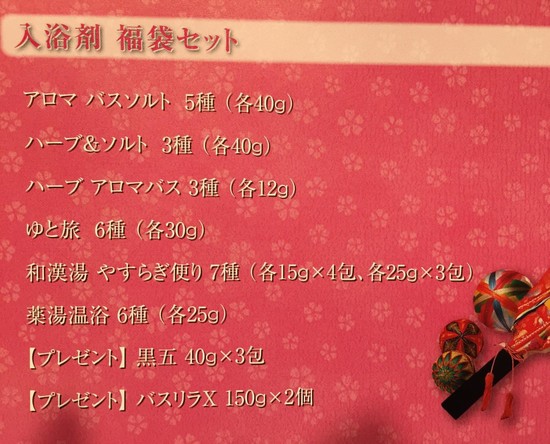 入浴剤 福袋セット
アロマ バスソルト 5種（各40g）
ハーブ&ソルト 3種（各40g）
ハーブ アロマバス 3種（各12g）
ゆと旅 6種（各30g）
和漢湯 やすらぎ便り 7種（各15g×4包、各25g×3包）
薬湯温浴 6種（各25g）
【プレゼント】黒五 40g×3包
【プレゼント】バスリラX 150g×2個